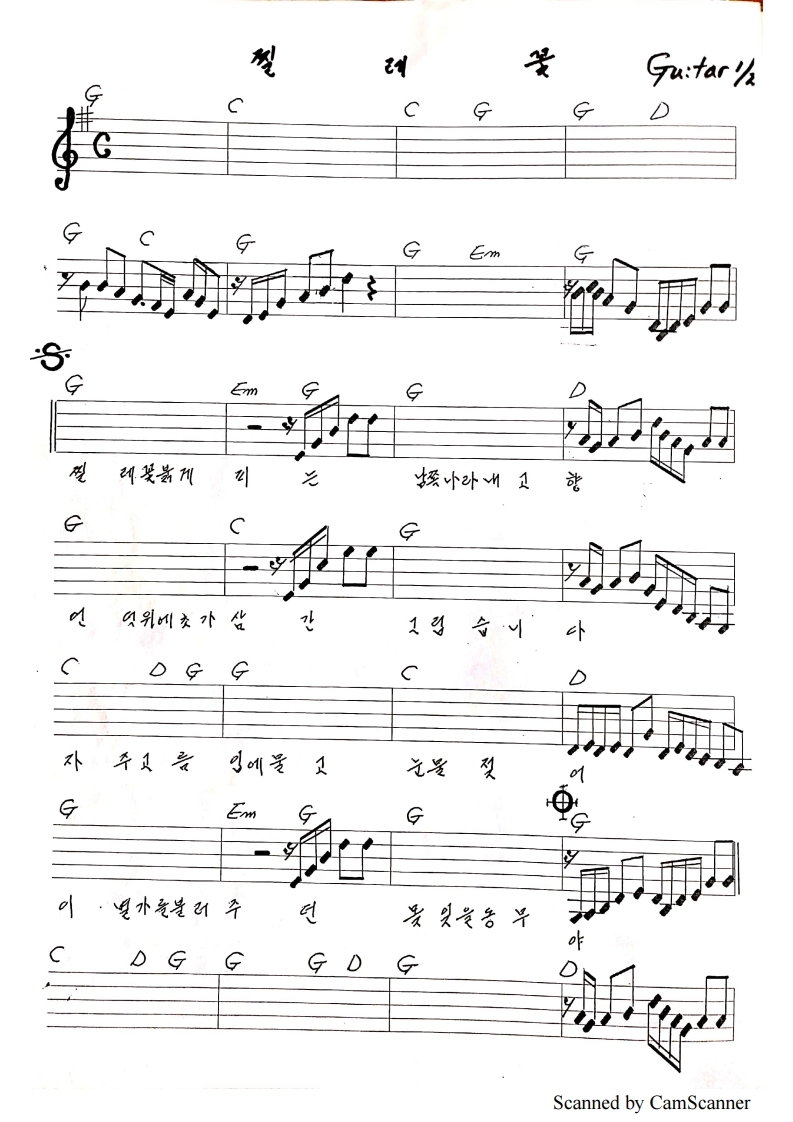 찔 레 꽃 Guitar 1/2
G C C G G D
G C G G Em G
G Em G G D
찔 레꽃붉게 피 는 남쪽나라내 고 향
G C G
언 덕위에초가 삼 간 그립 습 니 다
C D G G C D
자 주고 름 입에물 고 눈물 젖 어
G Em G G G
이 별가를불러 주 던 못 잊을동 무 야
C D G G G D G D
Scanned by CamScanner